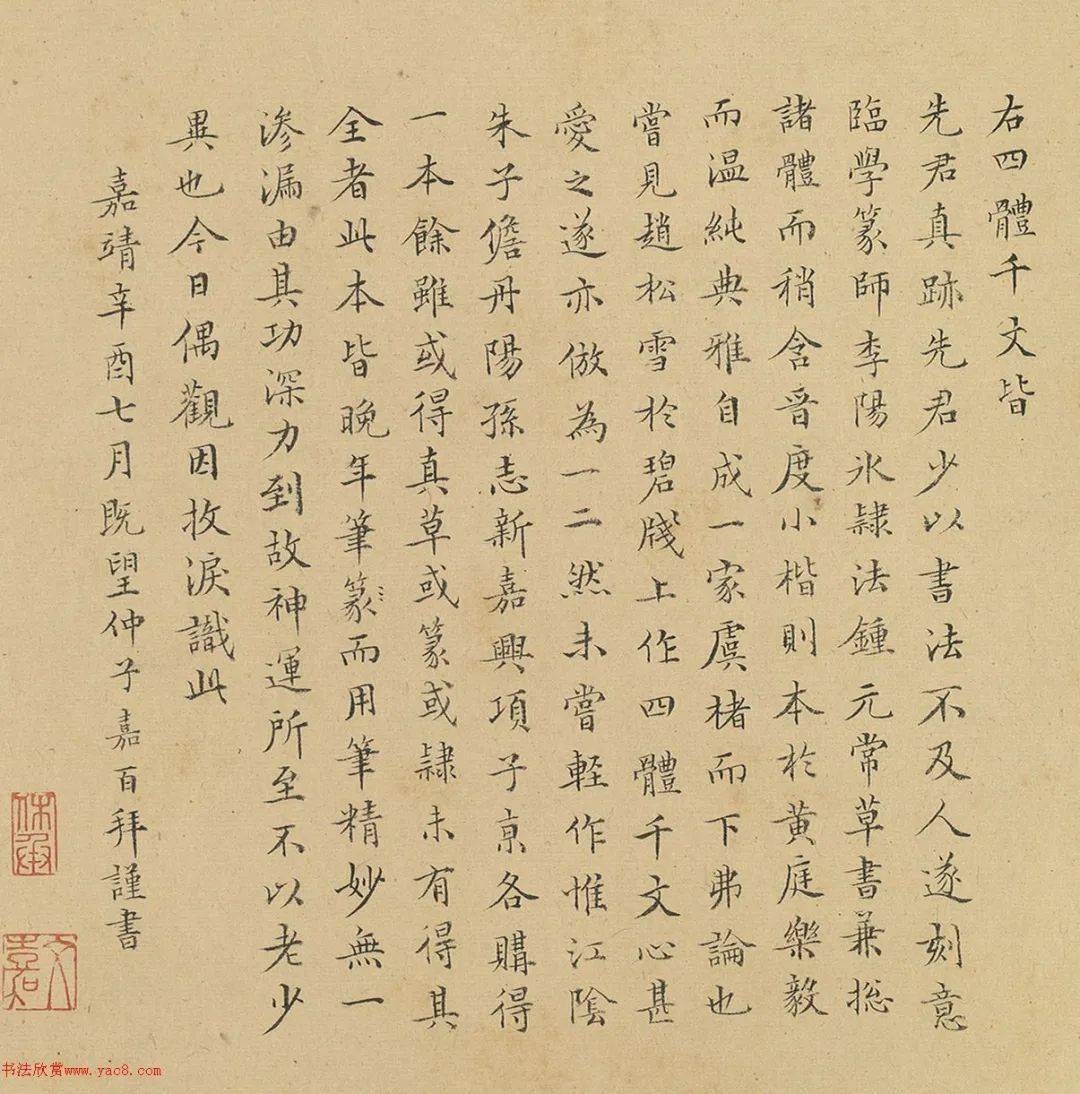 右四體千文皆
先君真跡先君少以書法不及人遂刻意
臨學篆師李陽氷隷法鍾元常草書兼捴
諸體而稍含晉度小楷則本於黄庭樂毅
而温純典雅自成一家虞楮而下弗論也
嘗見趙松雪於碧牋上作四體千文心甚
愛之遂亦倣為一二然未嘗輕作惟江陰
朱子儋丹陽孫志新嘉興項子京各購得
一本餘雖或得真草或篆或隷未有得其
全者此本皆晚年筆篆而用筆精妙無一
滲漏由其功深力到故神運所至不以老少
異也今日偶觀因抆淚識此
嘉靖辛酉七月既望仲子嘉百拜謹書
休承
文嘉
书法欣赏www.yac8.com